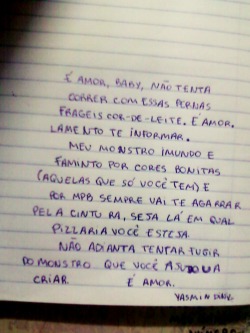 É AMOR, BABY, NÃO TENTA
CORRER COM ESSAS PERNAS
FRAGEIS COR-DE-LEITE. É AMOR.
LAMENTO TE INFORMAR.
MEU MONSTRO IMUNDO E
FAMINTO POR CORES BONITAS
(AQUELAS QUE SÓ VOCÊ TEM) E
POR MPB SEMPRE VAI TE AGARRAR
PELA CINTURA, SEJA LÁ EM QUAL
PIZZARIA VOCÊ ESTEJA.
NÃO ADIANTA TENTAR FUGIR
DO MONSTRO QUE VOCÊ AJUDOU A
CRIAR. É AMOR.
YASMIN